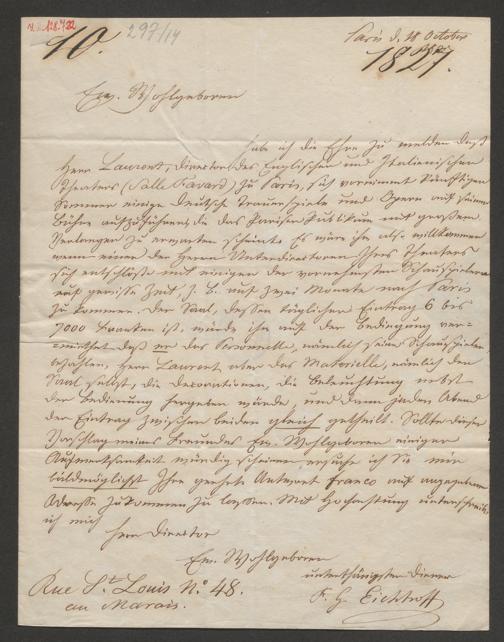 10.
297/14
Paris d. 18 October
1827.
Ew. Wohlgeboren
habe ich die Ehre zu melden daß
Herr Laurent, Director des Englischen und Italienischen
Theaters (Salle Favard) zu Paris, sich vornimmt künftigen
Sommer einige Deutsche Trauerspiele und Opern auf seiner
Bühne aufzuführen, die das Pariser Publikum mit großem
Verlangen zu erwarten scheint. Es wäre ihm also willkommen
wenn einer der Herrn Unterdirectoren Ihres Theaters
sich entschlösse mit einigen der vornehmsten Schauspielern
auf gewisse Zeit, z. B. auf zwei Monate nach Paris
zu kommen. Der Saal, dessen täglicher Eintrag 6 bis
7000 Franken ist, würde ihm auf der Bedingung ver-
miethet daß er das Personnelle, nämlich seine Schauspieler
bezahlen, Herr Laurent aber das Materielle, nämlich den
Saal selbst, die Decorationen, die Beleuchtung nebst
der Bedienung hergeben würde, und dann jeden Abend
der Eintrag zwischen beiden gleich getheilt. Sollte dieser
Vorschlag meines Freundes Ew. Wohlgeboren einiger
Aufmerksamkeit würdig scheinen ersuche ich Sie mir
baldmöglichst Ihre geehrte Antwort franco auf angegebene
Adresse zukommen zu lassen. Mit Hochachtung unterschreibe
ich mich
Herr Director
Ew. Wohlgeboren
unterthänigster Diener
F. G. Eichhoff
Rue St. Louis N.º 48.
au Marais.